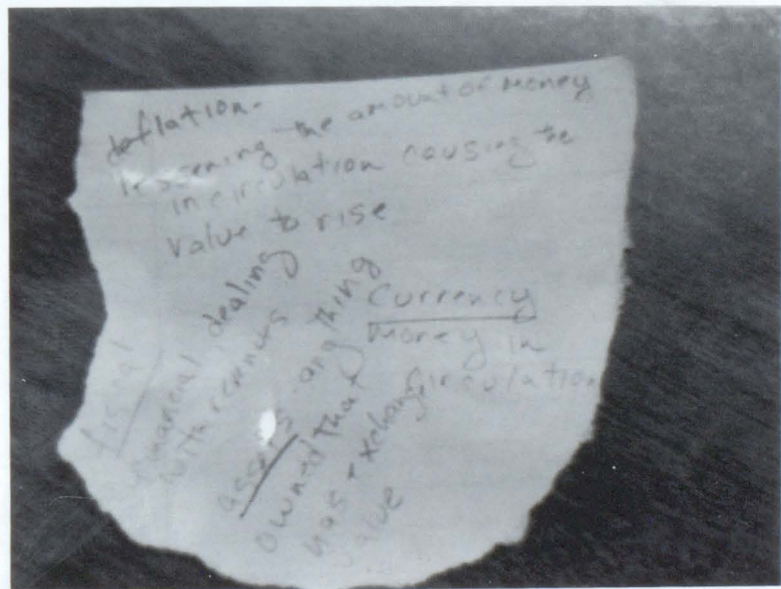 deflation-
lessening the amount of money
in circulation causing the
value to rise
fiscal
financial, dealing
with
assets - anything
owned that
has exchange
value
Currency
Money in
Circulation